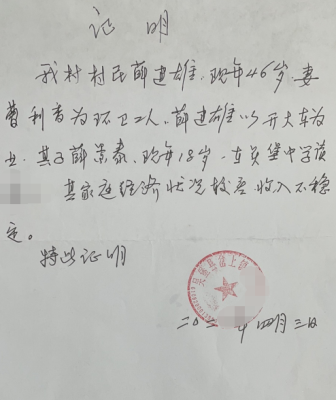 证明
我村村民薛建雄，现年46岁，妻
曹利香为环卫工人，薛建雄以开大车为
业。其子薛景泰，现年18岁，在吴堡中学读
其家庭经济状况较差，收入不稳
定。
特此证明
吴堡县
二〇二 年四月三日